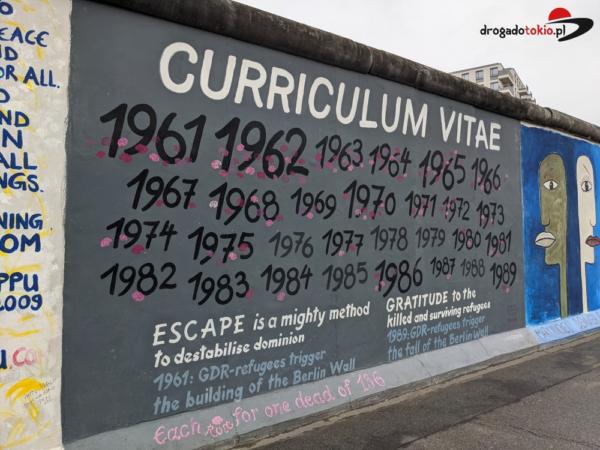 drogadotokio.pl
CURRICULUM VITAE
1961 1962 1963 1964 1965 1966
1967 1968 1969 1970 1971 1972 1973
1974 1975 1976 1977 1978 1979 1980 1981
1982 1983 1984 1985 1986 1987 1988 1989
ESCAPE is a mighty method
to destabilise dominion
1961: GDR-refugees trigger
the building of the Berlin Wall
GRATITUDE to the
killed and surviving refugees
1989: GDR-refugees trigger
the fall of the Berlin Wall
Each rose for one dead of 136
EACE
FOR ALL.
IN
ALL
NGS.
NING
OM
PPU
2009